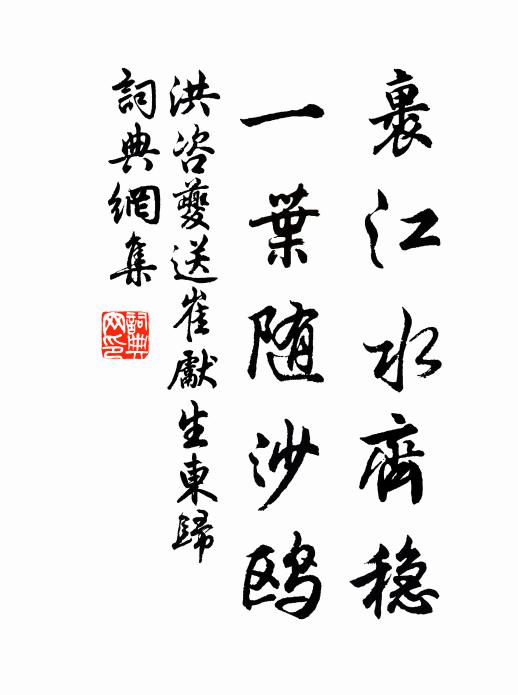 裹江水齊穩
一葉随沙鸥
洪咨夔送崔獻生東歸
詞典網集
詞典网印